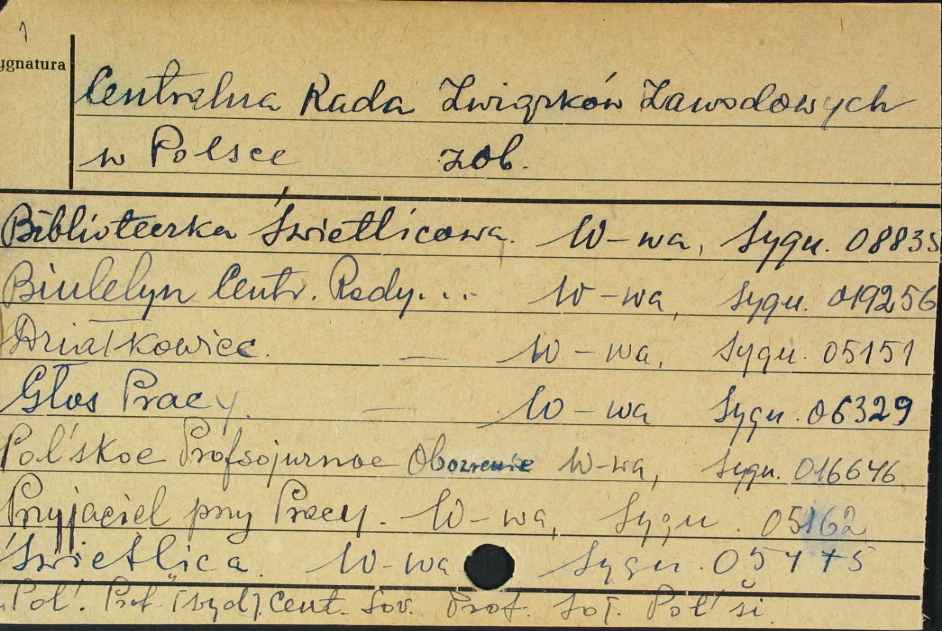 1
ygnatura
Centralna Rada Związków Zawodowych
w Polsce zob.
Biblioteczka Świetlicowa. W-wa, Sygn. 08835
Biuletyn Centr. Rady... W-wa, Sygn. 019256
Działkowiec. — W-wa, Sygn. 05151
Głos Pracy. — W-wa Sygn. 06329
Pol'skoe Profsojuznoe Obozrenie W-wa, Sygn. 016646
Przyjaciel przy Pracy. W-wa, Sygn. 05162
Świetlica. W-wa Sygn. 05775
Pol'. Prof. Cent. Sov. Prof. Soj. Pol'ši